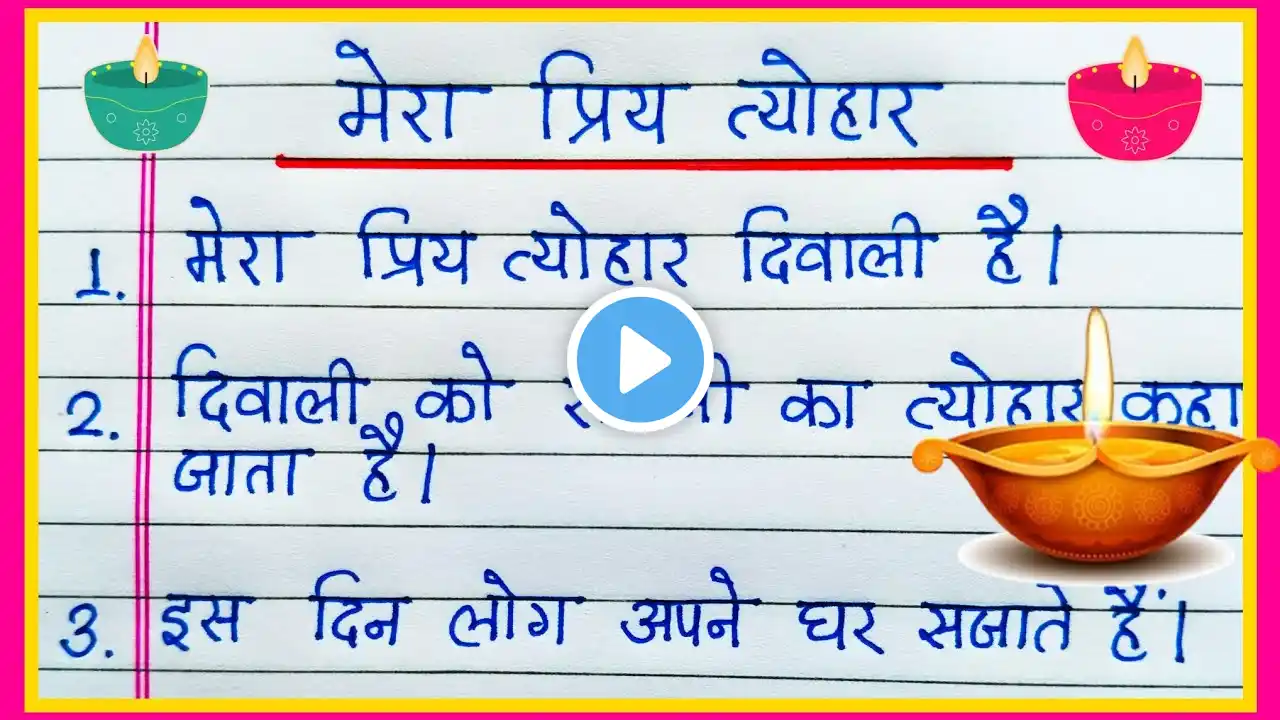 मेरा प्रिय त्योहार
1. मेरा प्रिय त्योहार दिवाली है।
2. दिवाली को का त्योहार कहा
जाता है।
3. इस दिन लोग अपने घर सजाते हैं।